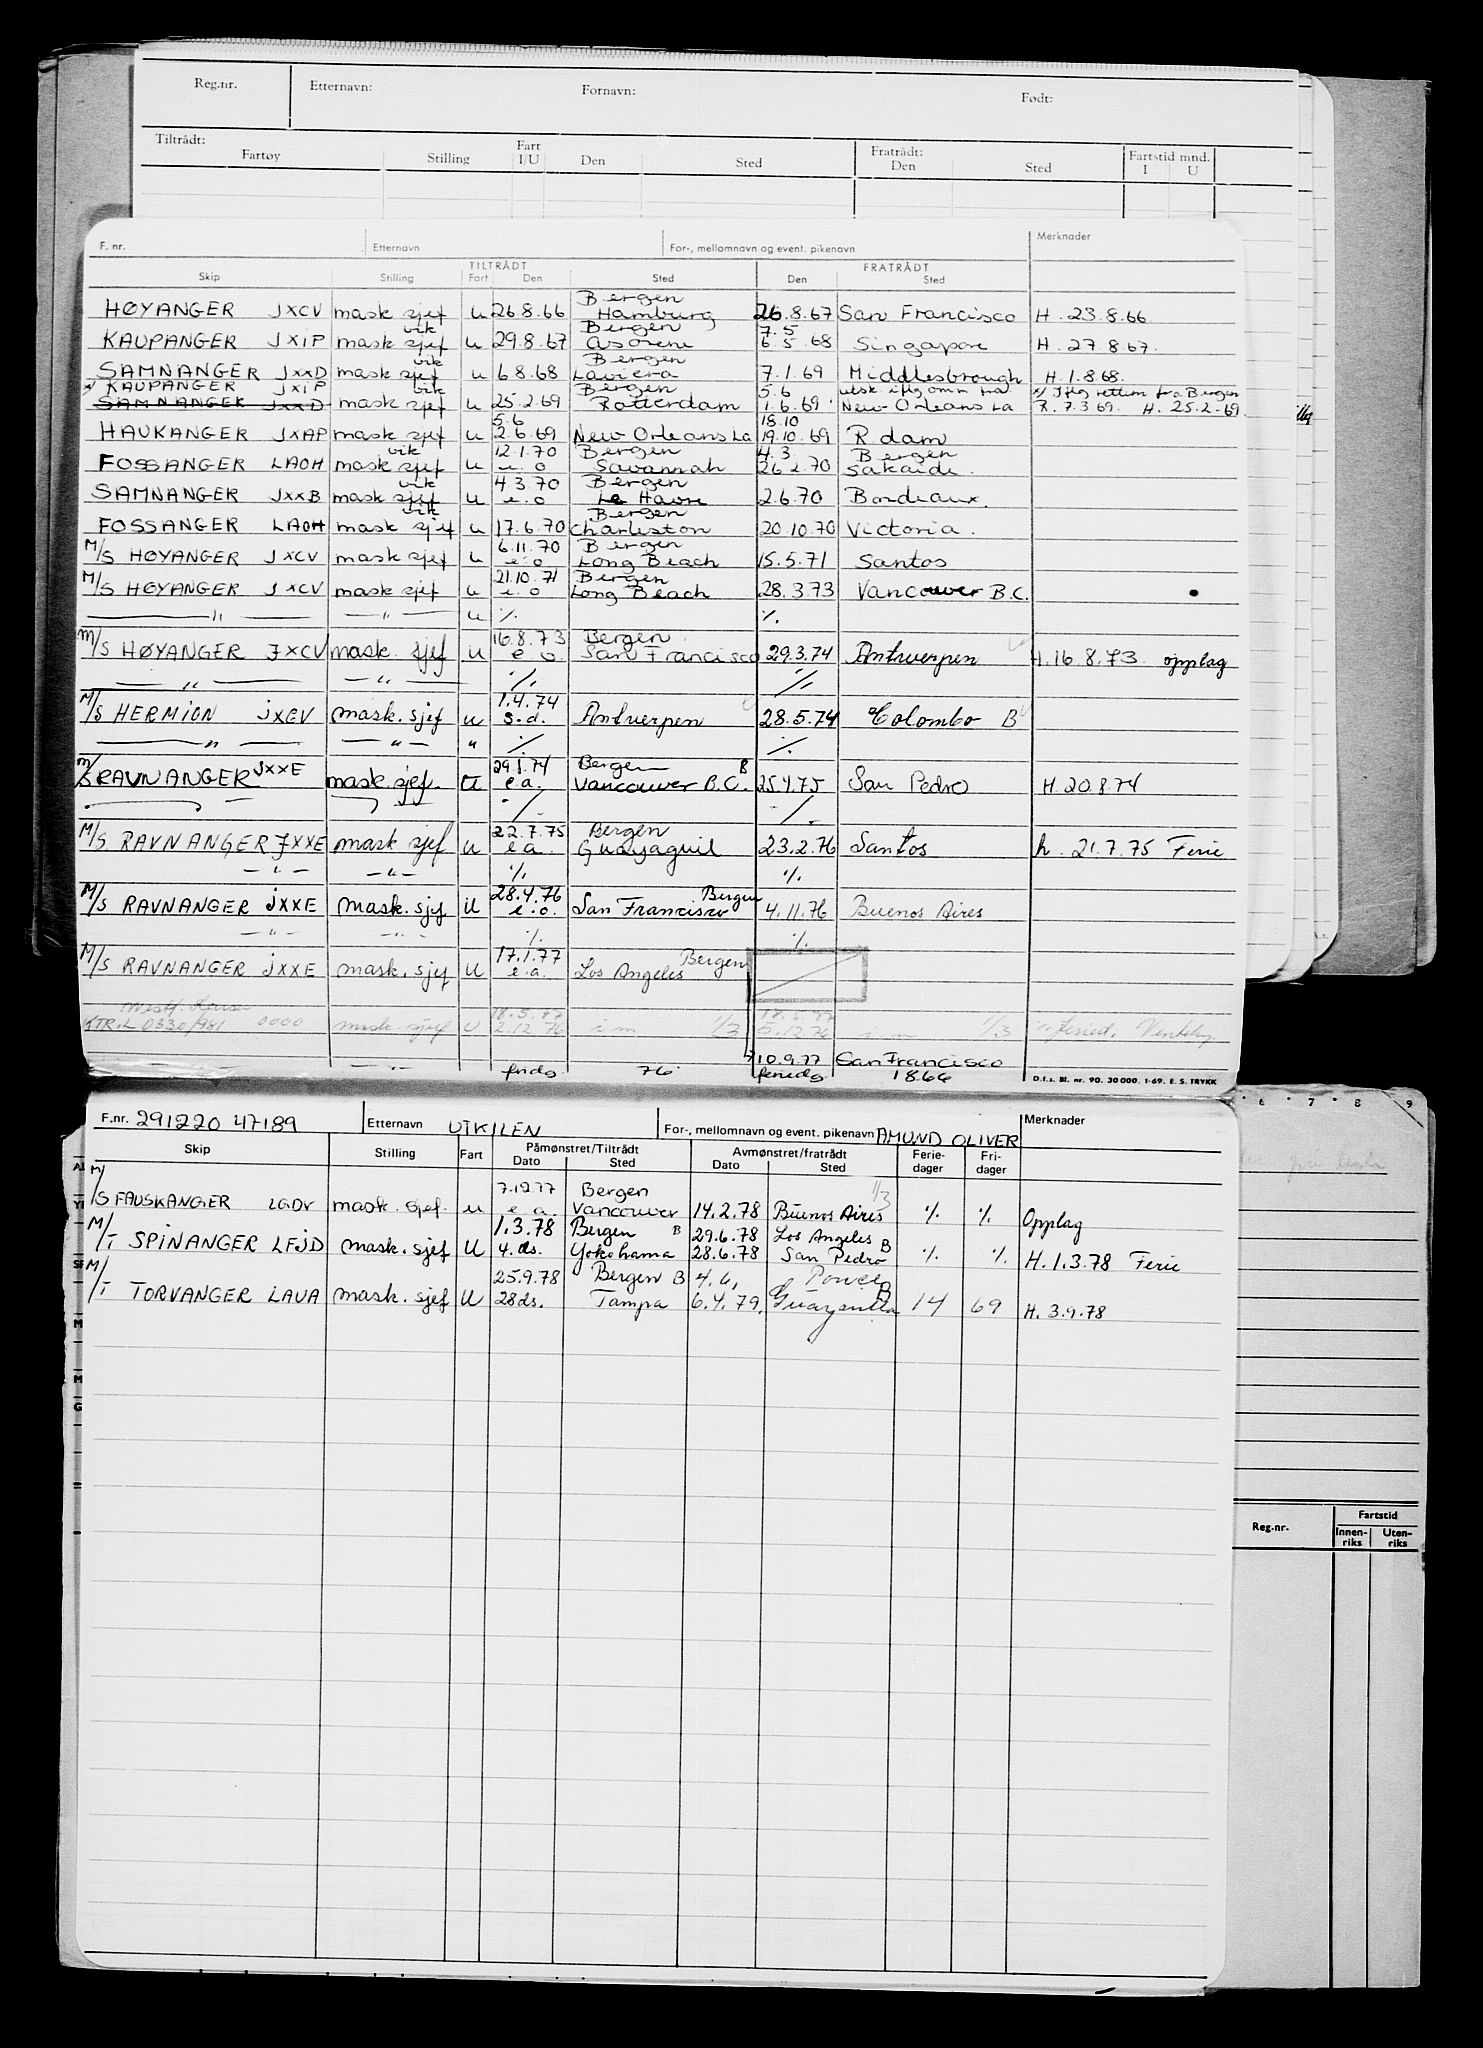 Reg.nr. Etternavn: Fornavn: Født:
Tiltrådt: Fratrådt: Fartstid mnd.
Fartøy Stilling Fart I/U Den Sted Den Sted I U
F. nr. Etternavn For-, mellomnavn og event. pikenavn Merknader
TILTRÅDT FRATRÅDT
Skip Stilling Fart Den Sted Den Sted
Bergen
HØYANGER JXCV mask sjef u 26 8.66 Hamburg 26.8.67 San Francisco H. 23.8.66
vik Bergen 7.5
KAUPANGER JXIP mask sjef u 29.8.67 6.5 68 Singapore H. 27 8.67.
vik Bergen
SAMNANGER JXXD mask sjef u 6 8.68 Laviera 7.1.69 Middlesbrough H. 1.8 68.
KAUPANGER JXIP vik Bergen 5.6 utsk iflg omm fra x) Iflg rettem fra Bergen
SAMNANGER JXXD mask sjef u 25.2.69 Rotterdam 1.6.69 New Orleans La R. 7.3 69. H. 25.2.69
5.6 18.10
HAUKANGER JXAP mask sjef u 2.6.69 New Orleans La 19.10.69 R dam
vik 12.1.70 Bergen 4.3 Bergen
FOSSANGER LAOH mask sjef u e.o Savannah 26 2.70 Sakaide.
vik 4 3.70 Bergen
SAMNANGER JXXB mask sjef u e.o Le Havre 2.6.70 Bordeaux.
vik Bergen
FOSSANGER LAOH mask sjef u 17.6.70 Charleston 20.10.70 Victoria.
6.11.70 Bergen
M/S HØYANGER JXCV mask sjef u e.o Long Beach 15.5.71 Santos
21.10.71 Bergen
M/S HØYANGER JXCV mask sjef u e.o Long Beach 28.3.73 Vancouver B.C.
— " — — " — u ./. ./.
16.8.73 Bergen
M/S HØYANGER JXCV mask. sjef u e o. San Francisco 29.3.74 Antwerpen H.16.8.73. opplag
— " — — " — ./. ./.
1.4.74
M/S HERMION JXGV mask. sjef u s.d. Antverpen 28.5.74 Colombo B
— " — — " — " ./. ./.
Bergen
M/S RAVNANGER JXXE mask.sjef. U e.a. Vancouver B.C. B 25.4.75 San Pedro H.20.8.74
./. ./.
22.7.75 Bergen
M/S RAVNANGER JXXE mask sjef u e a. Guayaquil 23.2.76 Santos h. 21.7.75 Ferie
— " — — " — ./. ./.
28.4.76 Bergen
M/S RAVNANGER JXXE mask. sjef u e.o. San Francisco 4.11.76 Buenos Aires
— " — — " — ./. ./.
17.1.77 Bergen
M/S RAVNANGER JXXE mask. sjef u e.a. Los Angeles
18.5.77 18.5.77
KTR.L 0330/981 0000 mask. sjef U 2.12 76 i m 1/3 5.12.76 i m 1/3 Feried.
10.9.77 San Francisco
— " — — " — frida 76 ferieda 1866 D.f.s. Bl. nr. 90. 30 000. 1-69. E. S. TRYKK
6 7 8 9
F.nr. 291220 47189 Etternavn UTKILEN For-, mellomnavn og event. pikenavn AMUND OLIVER Merknader
Skip Stilling Fart Påmønstret/Tiltrådt Avmønstret/fratrådt Ferie- Fri-
Dato Sted Dato Sted dager dager
7.12.77 Bergen 1/3
M/S FAUSKANGER LGDV mask. sjef. u e a. Vancouver 14.2.78 Buenos Aires ./. ./. Opplag
1.3.78 Bergen B 29.6.78 Los Angeles
M/T SPINANGER LFJD mask. sjef U 4. ds. Yokohama 28.6.78 San Pedro B ./. ./. H. 1.3.78 Ferie
25.9.78 Bergen B 4.6, Ponce
M/T TORVANGER LAUA mask. sjef U 28 ds. Tampa 6.4.79. B 14 69 H. 3.9.78
Reg.nr. Fartstid
Innen-riks Uten-riks